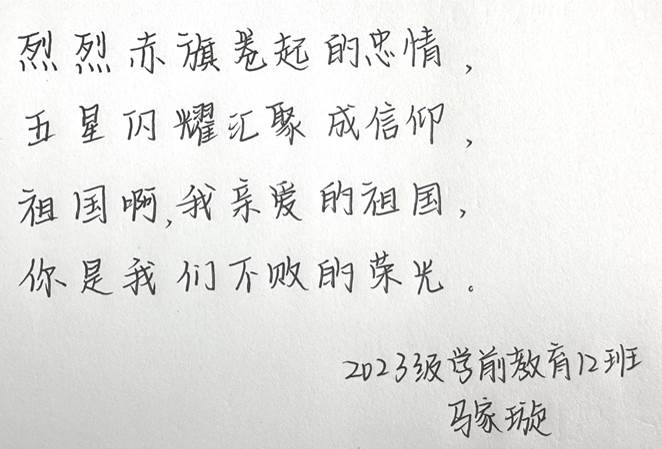 烈烈赤旗卷起的忠情，
五星闪耀汇聚成信仰，
祖国啊，我亲爱的祖国，
你是我们不败的荣光。
2023级学前教育12班
马家璇